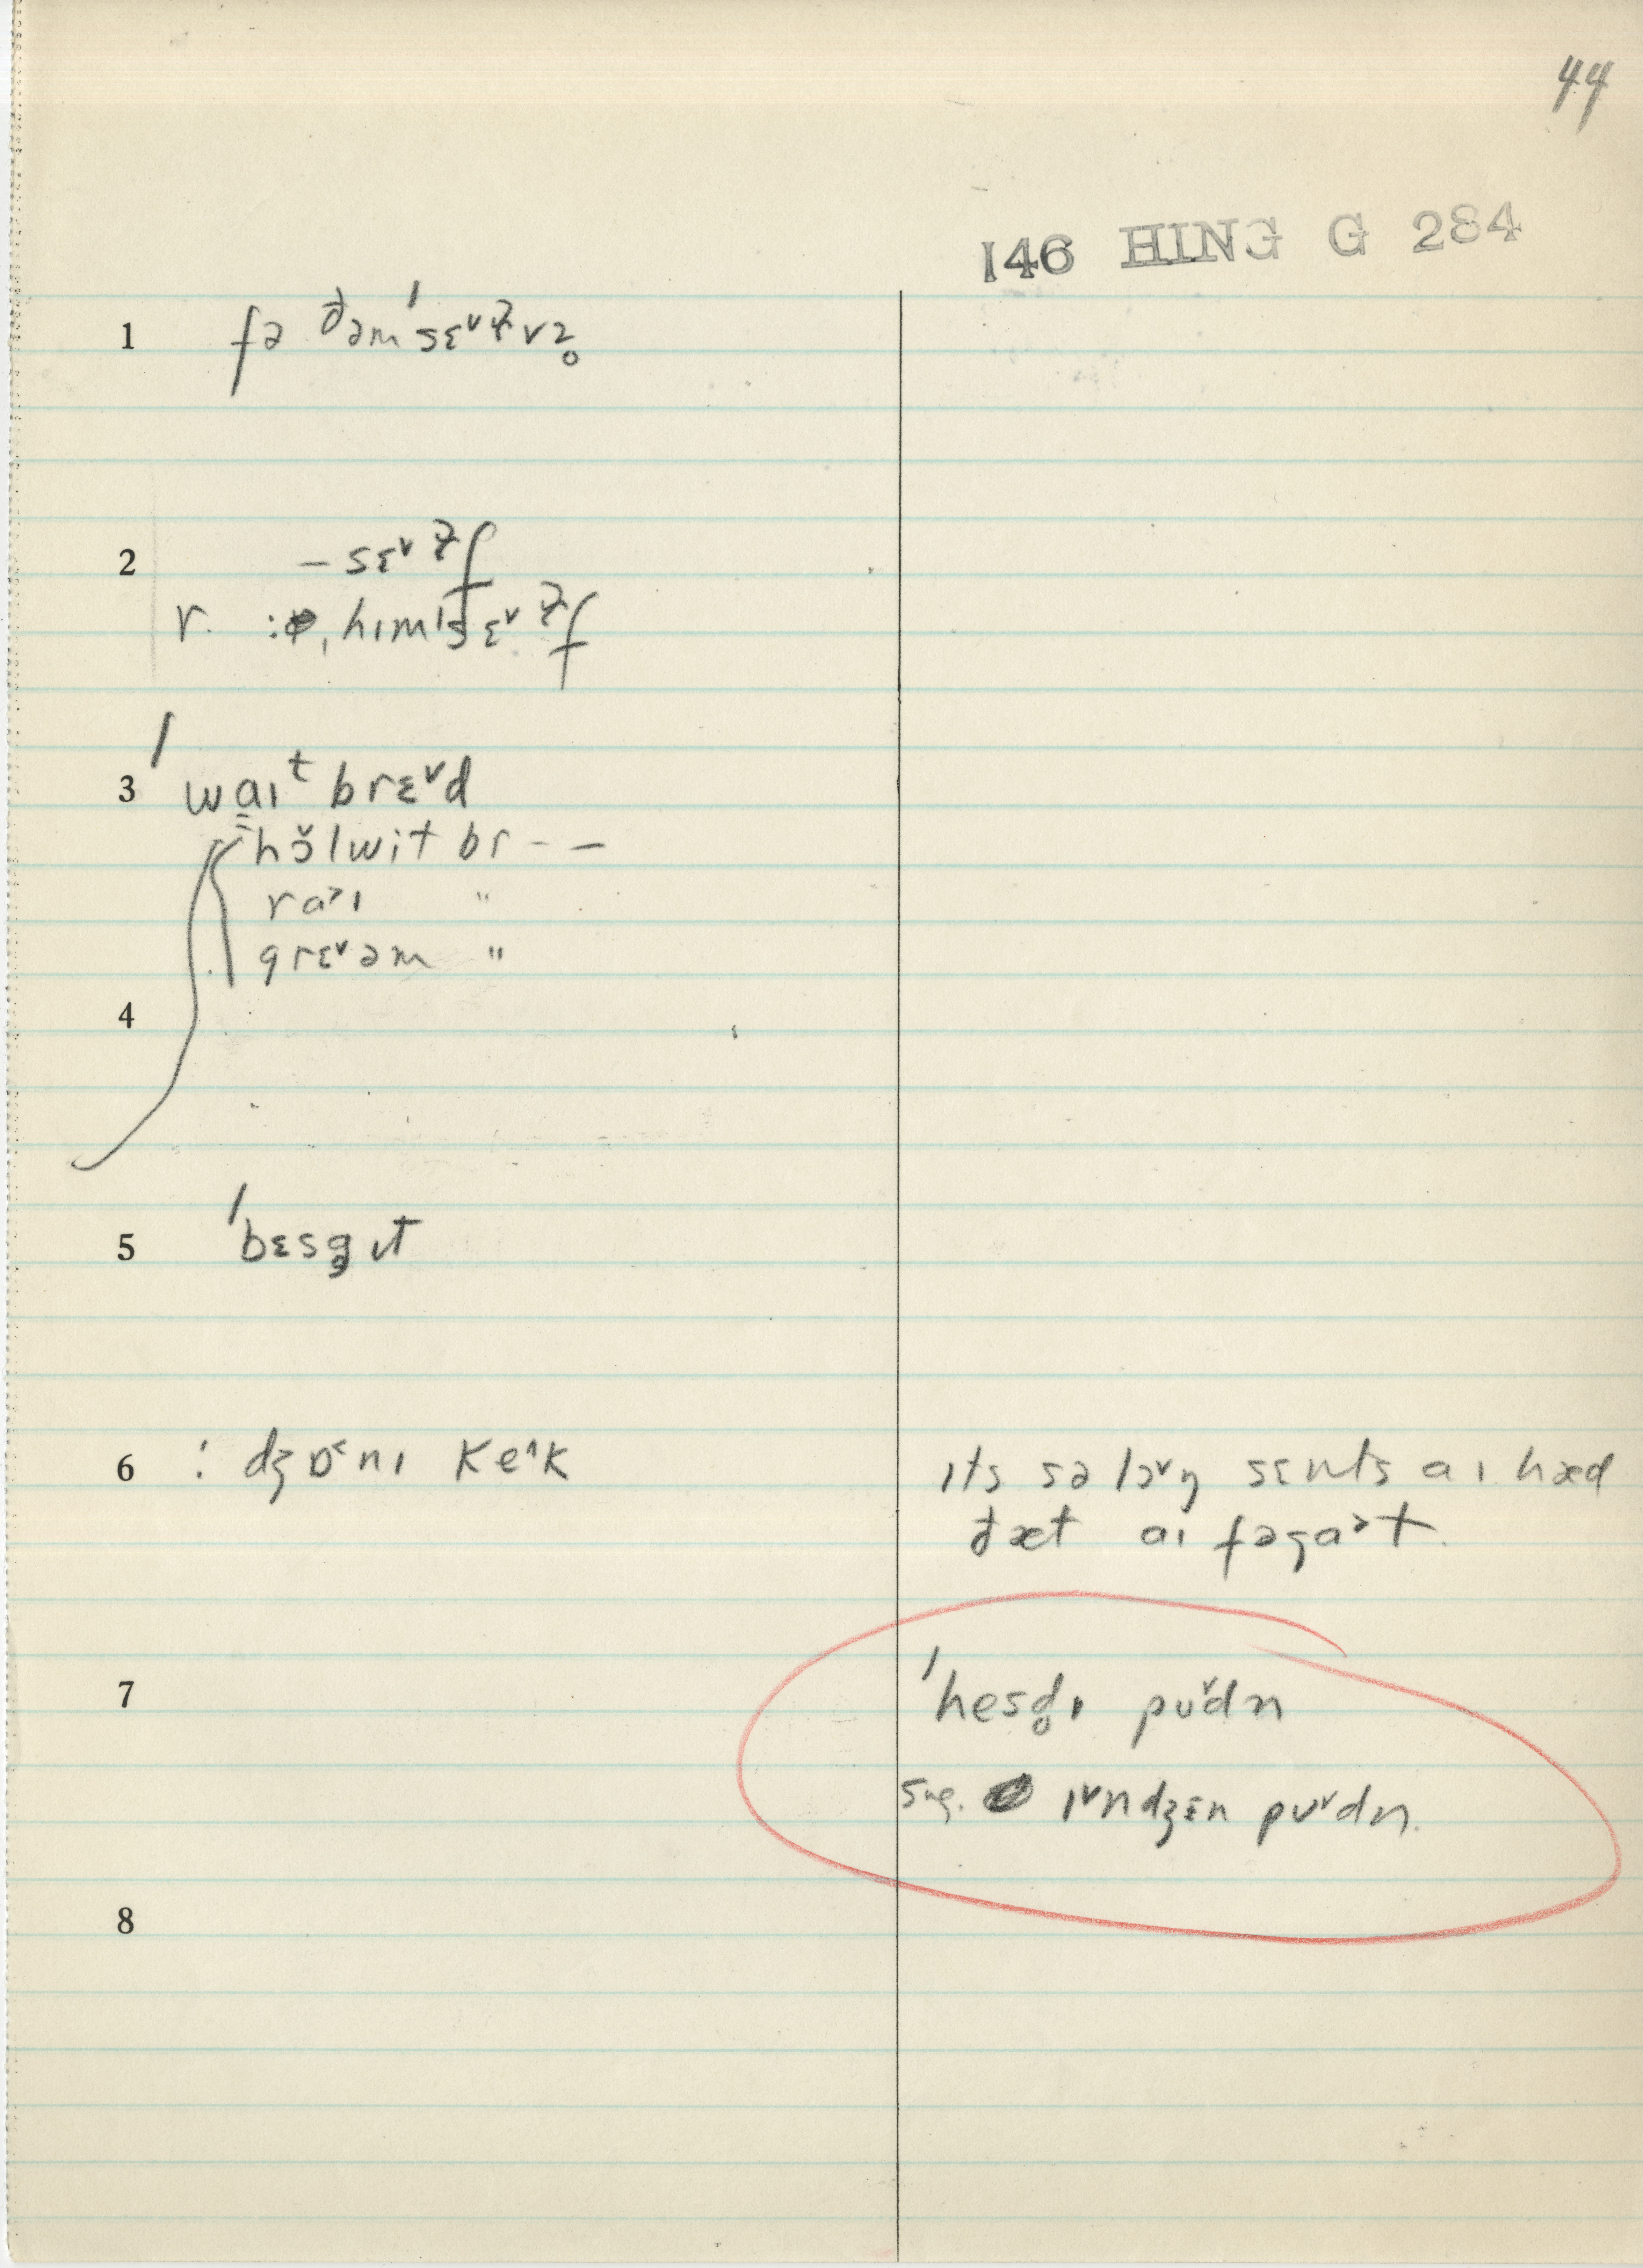 44
146 HING G 284
1 fə ðəmˈsɛ˅ɫvz̥
2 – sɛ˅ɫf
r. : ˌhɪmˈsɛ˅ɫf
3 ˈwa̳ɪᵗ brɛ˅d
hɔ̆lwit br - –
ra˃ɪ "
grɛ˅əm "
4
5 ˈbɛsg̥ɪt
6 : dʒɒ˂nɪ ke˄k
ɪts sə lɔ˅ŋ sɛnts aɪ hæd
ðæt aɪ fəga˃t.
7 ˈhesd̥ɪ pʊ˅dn
sug. ɪ˅ndʒɛn pʊ˅dn.
8